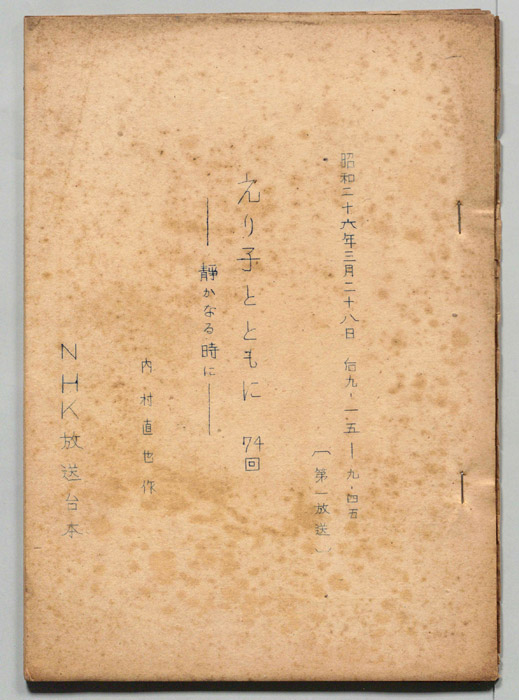 昭和二十六年三月二十八日 后九・一五―九・四五
(第一放送)
えり子とともに 74回
――靜かなる時に――
内村直也作
NHK放送台本